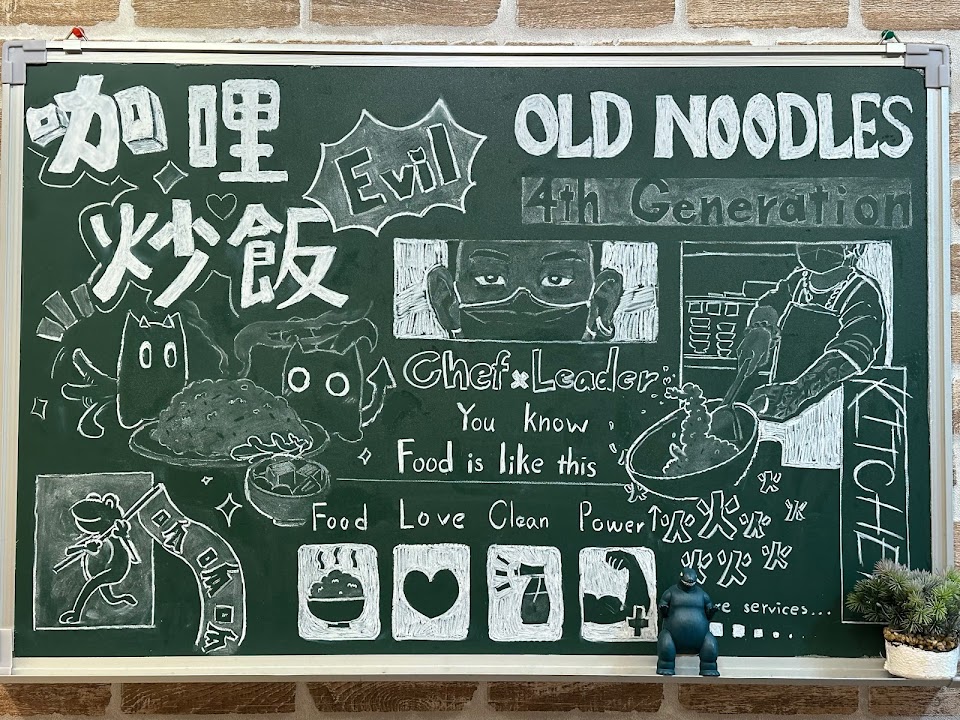 咖哩
炒飯
Evil
OLD NOODLES
4th Generation
Chef × Leader
You know
Food is like this
KITCHE
Food Love Clean Power↑
火火火火
火火火
services...